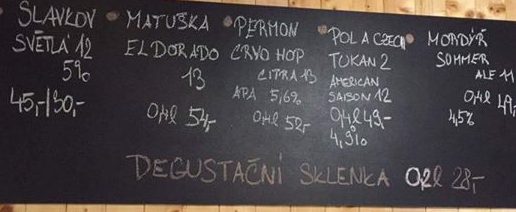 SLAVKOV
SVĚTLÁ 12
5%
45,-/30,-
MATUŠKA
ELDORADO
13
0,4l 54,-
PERMON
CRYO HOP
CITRA 13
APA 5,6%
0,4l 52,-
POLA CZECH
TUKAN 2
AMERICAN
SAISON 12
0,4l 49,-
4,9%
MORDÝŘ
SOMMER
ALE 11
0,4l 49,-
4,5%
DEGUSTAČNÍ SKLENKA 0,2l 28,-